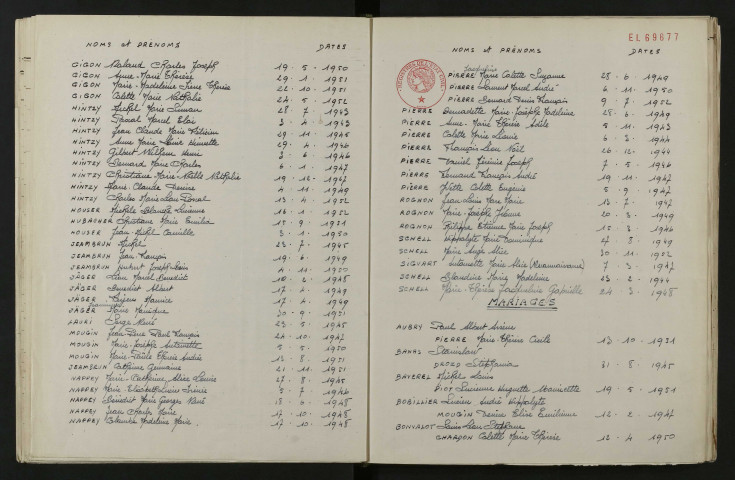 NOMS et PRÉNOMS DATES
GIGON Roland Charles Joseph 19 - 5 - 1950
GIGON Anne-Marie Thérèse 29 - 1 - 1951
GIGON Marie-Madeleine Irène Thérèse 22 - 10 - 1951
GIGON Colette Marie Nathalie 24 - 5 - 1952
HINTZY Michel Marie 28 - 7 - 1943
HINTZY Marcel Eloi 3 - 1943
HINTZY Jean Claude Marie 29 - 11 - 1945
HINTZY Anne Marie 29 - 4 - 1946
HINTZY Gilbert 3 - 6 - 1946
HINTZY Bernard Marie Charles 6 - 1 - 1947
HINTZY Christiane Marie-Noëlle Nathalie 19 - 12 - 1947
HINTZY Marie-Claude Denise 4 - 11 - 1949
HINTZY Charles Marie Léon 13 - 4 - 1952
HOUSER Michèle Blanche 16 - 1 - 1952
HUBACHER Christiane Marie 15 - 9 - 1951
HOUSER Jean-Michel Camille 3 - 1 - 1950
JEAMBRUN Michel 23 - 7 - 1945
JEAMBRUN Jean-François 19 - 6 - 1949
JEAMBRUN Hubert Joseph 4 - 11 - 1950
JÄGER Marcel Benedict 10 - 2 - 1948
JÄGER Benedict Albert 17 - 4 - 1949
JÄGER Maurice 17 - 4 - 1949
JÄGER Marie Monique 30 - 9 - 1951
LAURI Serge René 23 - 5 - 1945
MOUGIN Jean-Pierre Paul François 24 - 10 - 1947
MOUGIN Marie-Josèphe Antoinette 5 - 5 - 1950
MOUGIN Marie-Odile Andrée 13 - 8 - 1951
JEAMBRUN Catherine Germaine 21 - 11 - 1951
NAPPEY Marie-Catherine Alice 27 - 8 - 1945
NAPPEY Marie 5 - 7 - 1946
NAPPEY Marie Georges René 18 - 2 - 1948
NAPPEY Jean Charles Marie 17 - 10 - 1948
NAPPEY Blanche Madeleine Marie 17 - 10 - 1948
EL 69677
NOMS et PRÉNOMS DATES
Jacqueline
PIERRE Marie Colette Suzanne 28 - 6 - 1949
PIERRE Marcel André 6 - 11 - 1950
PIERRE Bernard Denis François 9 - 7 - 1952
PIERRE Bernadette Marie-Josèphe Madeleine 28 - 6 - 1949
PIERRE Anne-Marie Thérèse Odile 5 - 11 - 1943
PIERRE Colette Marie 6 - 3 - 1944
PIERRE François Léon Noël 26 - 12 - 1944
PIERRE Daniel Joseph 7 - 5 - 1946
PIERRE Bernard François André 19 - 11 - 1947
PIERRE Colette Eugénie 5 - 9 - 1947
ROGNON Jean-Louis Marie 13 - 7 - 1947
ROGNON Marie-Josèphe 20 - 3 - 1949
ROGNON Philippe Etienne Marie Joseph 15 - 3 - 1946
SCHELL Hippolyte Marie Dominique 27 - 8 - 1949
SCHELL Marie Ange Alice 30 - 11 - 1952
SIGUART Antoinette Marie Alice (Reconnaissance) 7 - 3 - 1947
SCHELL Blandine Marie Madeleine 23 - 2 - 1944
SCHELL Marie-Thérèse Jacqueline Gabrielle 24 - 3 - 1948
MARIAGES
AUBRY Paul Albert
PIERRE Marie-Thérèse Cécile 13 - 10 - 1951
BANAS Stanislaw
DROZD Stephania 31 - 8 - 1945
BAVEREL Michel Louis
Lucienne Huguette 19 - 5 - 1951
BOBILLIER Lucien André Hippolyte
MOUGIN Denise Elise Emilienne 12 - 2 - 1947
BONVALOT Louis Léon Stéphane
CHARDON Colette Marie Thérèse 12 - 4 - 1950